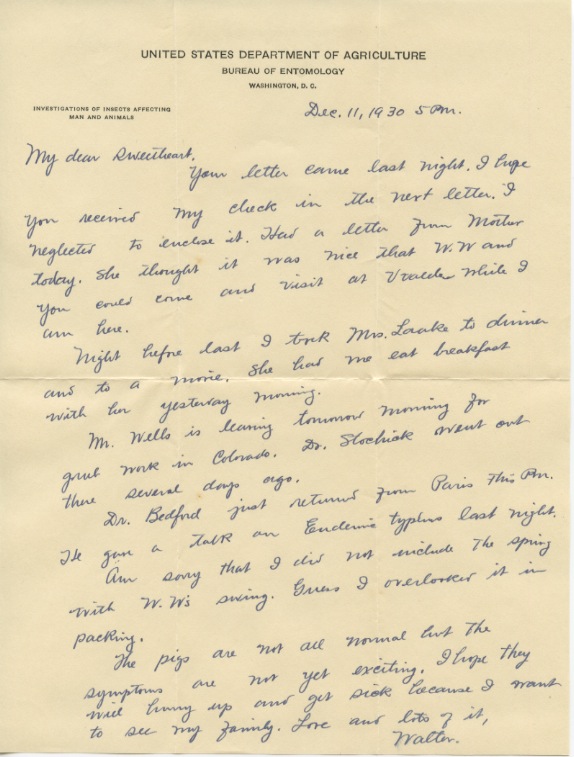 UNITED STATES DEPARTMENT OF AGRICULTURE
BUREAU OF ENTOMOLOGY
WASHINGTON, D. C.
INVESTIGATIONS OF INSECTS AFFECTING
MAN AND ANIMALS
Dec. 11, 1930 5 Pm.
My dear Sweetheart,
Your letter came last night. I hope
you received my check in the next letter. I
neglected to enclose it. Had a letter from Mother
today. She thought it was nice that W.W and
you could come and visit at Uvalde while I
am here.
Night before last I took Mrs. Laake to dinner
and to a movie. She had me eat breakfast
with her yesterday morning.
Mr. Wells is leaving tomorrow morning for
grub work in Colorado. Dr. went out
there several days ago.
Dr. Bedford just returned from Paris this Pm.
He gave a talk on Endemic typhus last night.
Am sorry that I did not include the spring
with W.W's swing. Guess I overlooked it in
packing.
The pigs are not all normal but the
symptoms are not yet exciting. I hope they
will hurry up and get sick because I want
to see my family. Love and lots of it,
Walter.